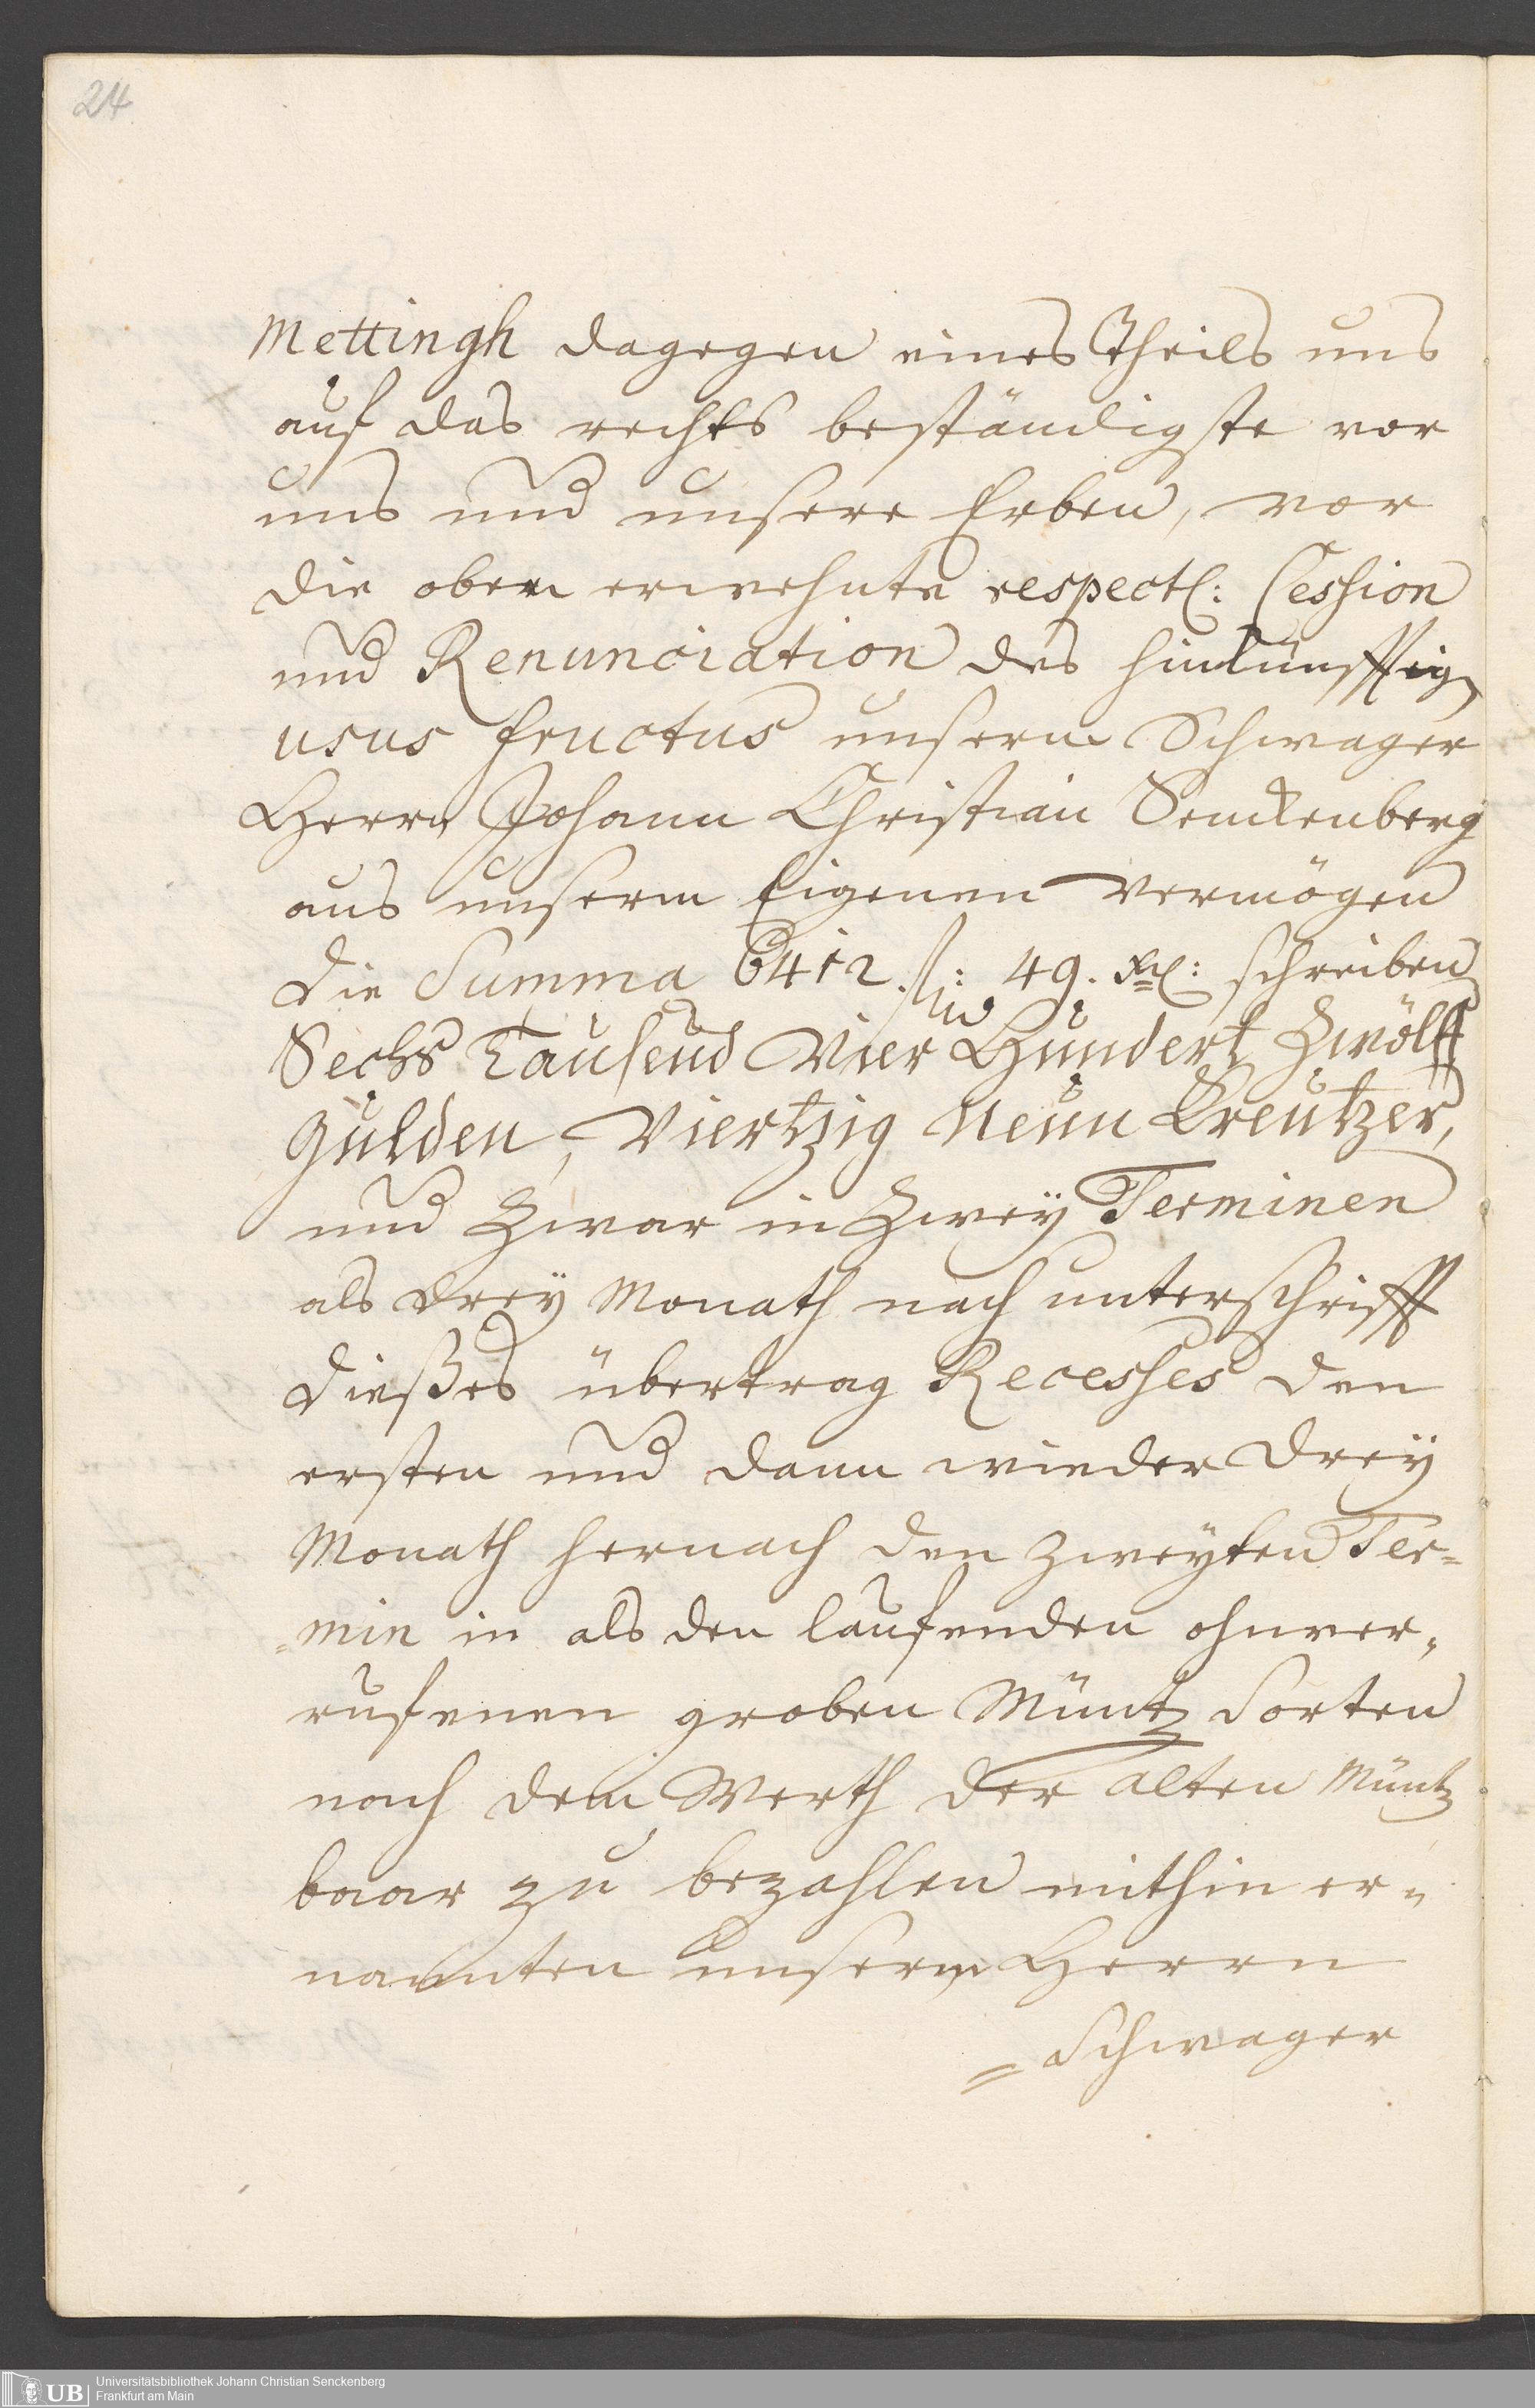 24
Mettingh dagegen eines Theils uns
auf das rechts beständigste vor
uns und unsere Erben, vor
die oben erwehnte respectl: Cession
und Renunciation des hinkünfftig
usus fructus unserm Schwager
Herrn Johann Christian Senckenberg
aus unserm Eigenen Vermögen
die Summa 6412. fl: 49. Xr: schreiben
Sechs Tausend Vier Hundert Zwölff
Gulden, Viertzig Neun Kreutzer,
und Zwar in Zweÿ Terminen
als dreÿ Monath nach unterschrifft
dießes übertrag Recesses den
ersten und dann wieder dreÿ
Monath hernach den zweÿten Ter=
=min in als den lauffenden ohnver„
ruffenen groben Müntz Sorten
nach dem Werth der alten Müntz
baar zu bezahlen mithin er„
nannten unserm Herrn
=Schwager
UB
Universitätsbibliothek Johann Christian Senckenberg
Frankfurt am Main